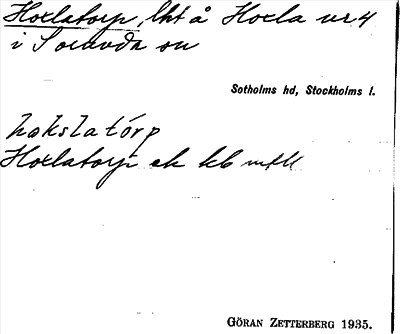 Hoxlatorp, lht å Hoxla nr 4
i Sorunda sn
Sotholms hd, Stockholms l.
hokslatórp
Hoxlatorp ek kb
GÖRAN ZETTERBERG 1935.